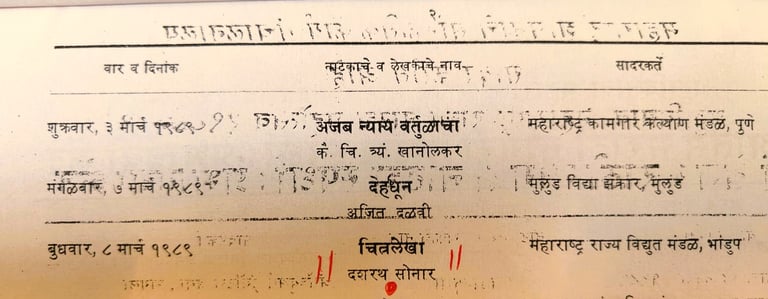 २
वार व दिनांक नाटकाचे व लेखकाचे नाव सादरकर्ते
शुक्रवार, ३ मार्च १९८९ अजब न्याय वर्तुळाचा महाराष्ट्र कामगार कल्याण मंडळ, पुणे
कै. चि. त्र्यं. खानोलकर
मंगळवार, ७ मार्च १९८९ देहधून मुलुंड विद्या झंकार, मुलुंड
अजित दळवी
बुधवार, ८ मार्च १९८९ चित्रलेखा महाराष्ट्र राज्य विद्युत मंडळ, भांडुप
दशरथ सोनार